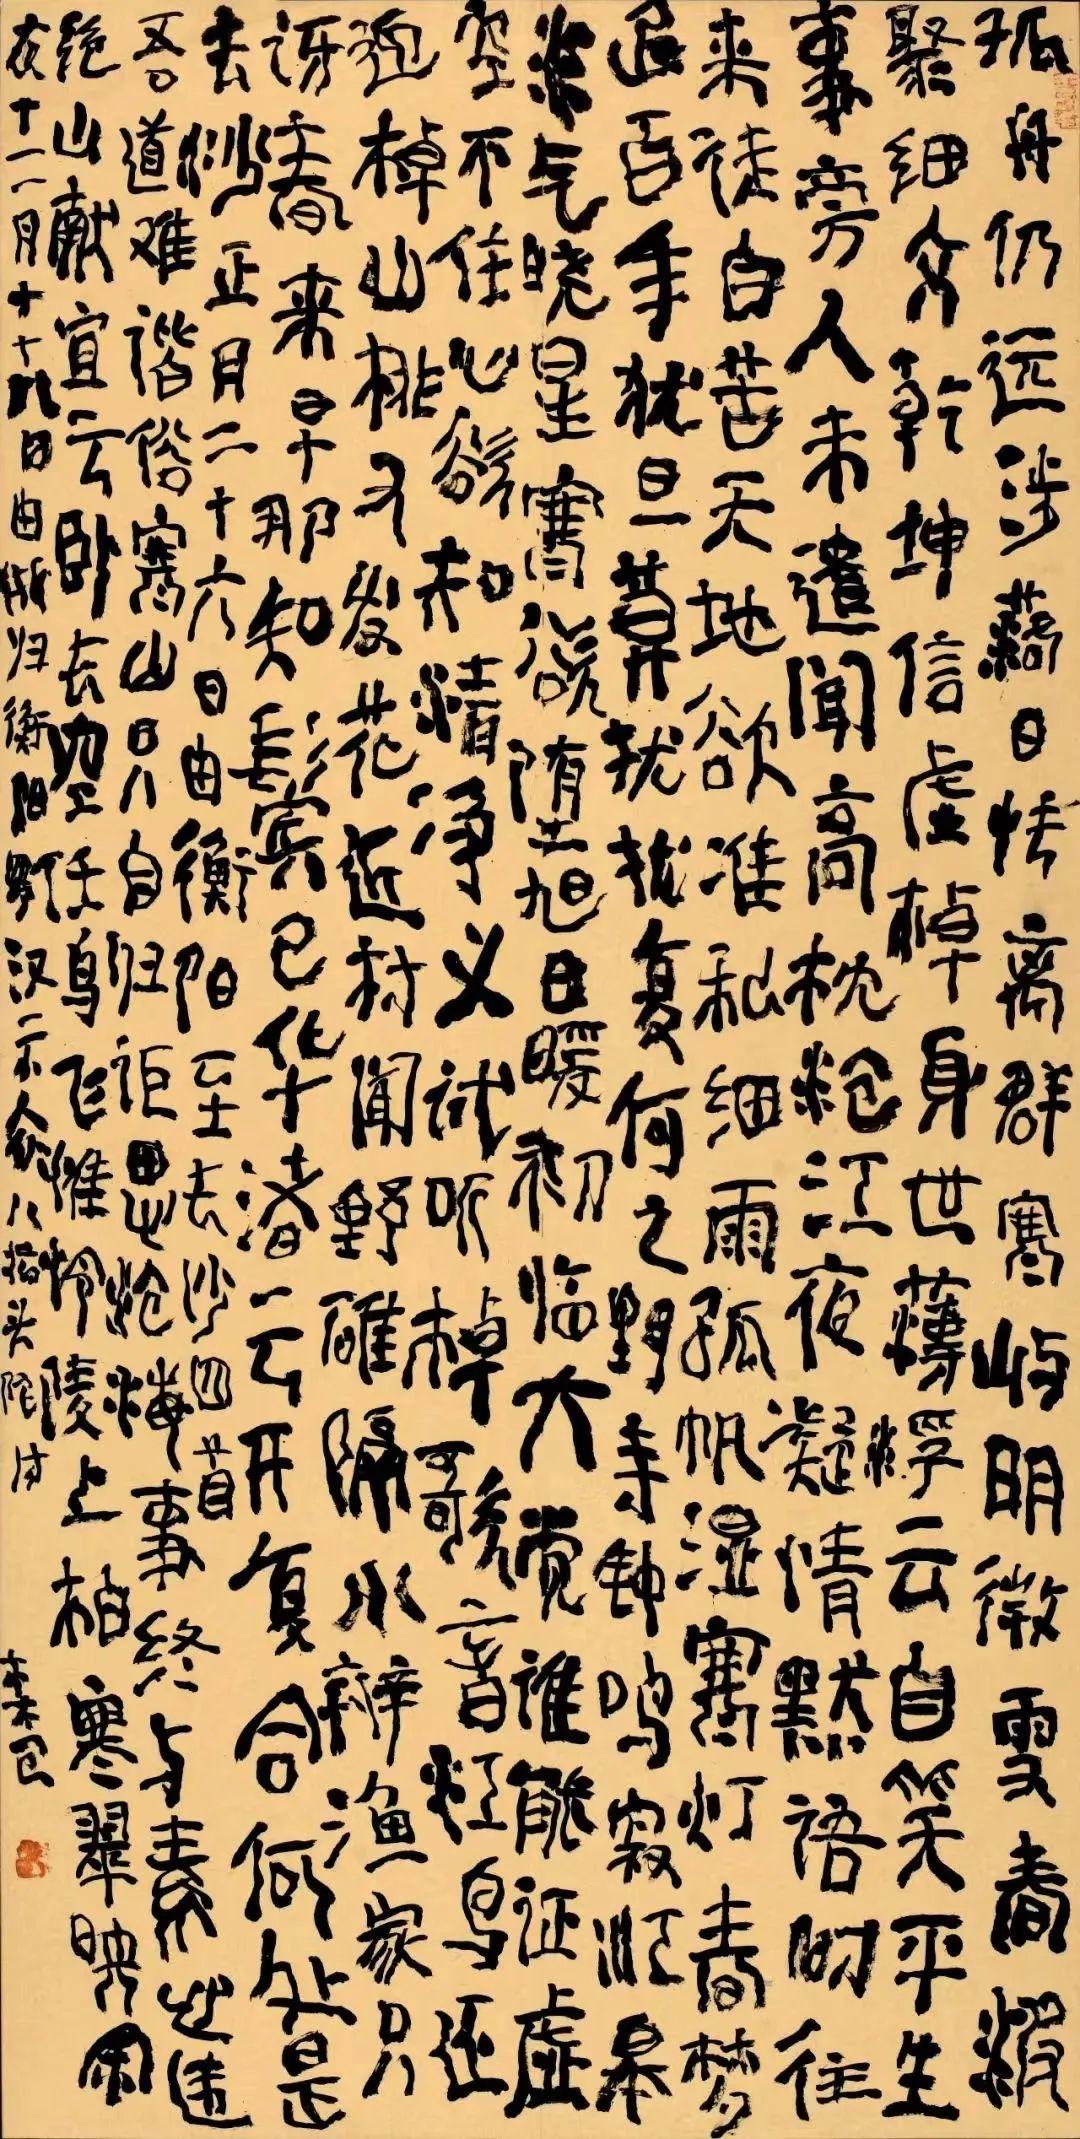 孤舟仍远涉藕日怅离群寒屿明微雪春烟
聚细文乾坤信虚棹身世薄浮云自笑平生
事旁人未遣闻高枕沧江夜凝情默语时往
来徒自苦天地欲准私细雨孤帆湿寒灯春梦
追百年犹旦暮扰扰复何之野寺钟鸣寂江皋
气晓星寒欲堕旭日暖初临大觉谁能证虚
空不任心欲知精净义试听棹歌音烟鸟还
迎棹山桃又发花近村闻野碓隔水辨渔家只
讶春来早那知髩宾已华十渚一云开复合何处是
去沙正月二十六日由衡阳至士去沙四首
吾道难谐俗寒山只自归讵思沧海事终与素心违
绝山献宜云卧长空任鸟飞惟怜陵上柏寒翠映
衣十一月十八日由 归衡阳野次示人 八指头陀诗